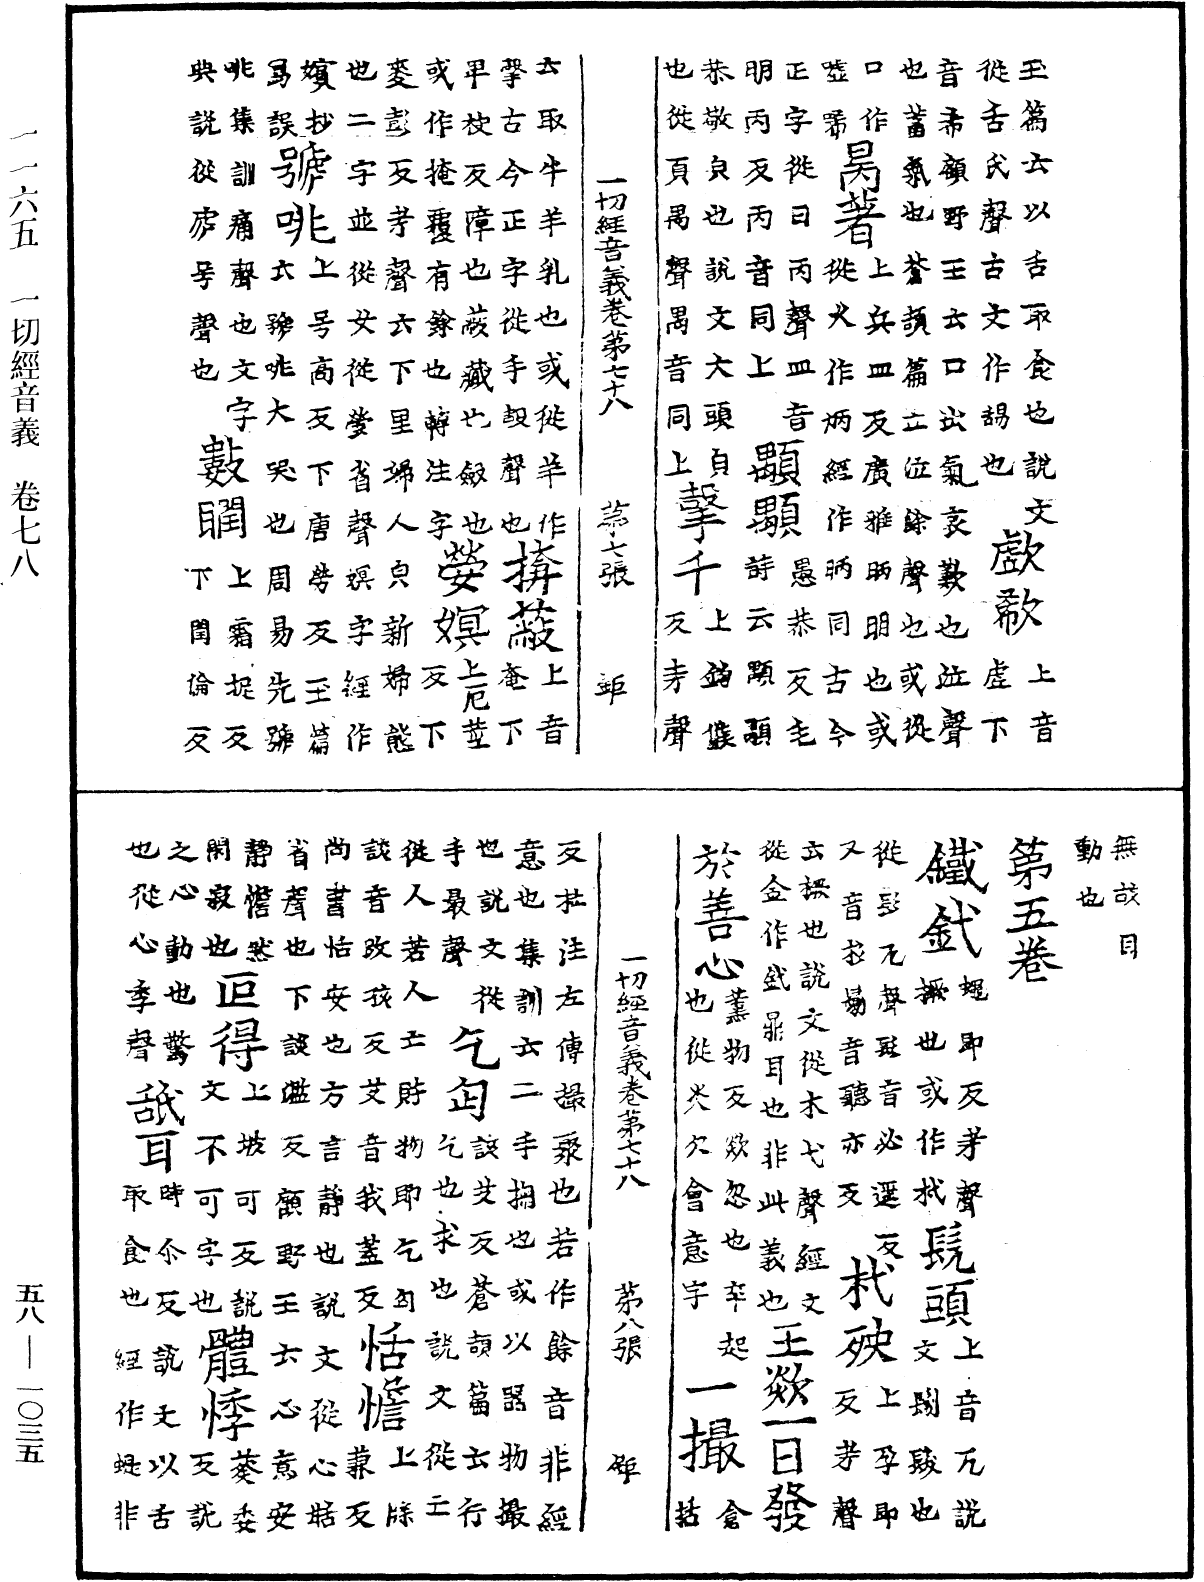 玉篇云以舌取食也說文
從舌氏聲古文作也
歔欷 上音
虛下
音希顧野王云口出氣哀歎也泣聲
也蓄氣也蒼頡篇云泣餘聲也或從
口作
噓唏
昺著 上兵皿反廣雅昞明也或
從火作炳經作昞同古今
正字從日丙聲皿音
明丙反丙音同上
顒顒 愚恭反毛
詩云顒顒
恭敬皃也說文大頭皃
也從頁禺聲禺音同上
千 上鉤候
反考聲
一切經音義卷第七十八 第七張 鉅
云取牛羊乳也或從羊作
古今正字從手聲也
揜蔽 上音
奄下
卑袂反障也蔽藏也斂也
或作掩覆有餘也轉注字
嫈嫇 上厄莖
反下
麥彭反考聲云下里婦人皃新婦態
也二字並從女從嫈省聲嫇字經作
嬪抄
寫誤
號咷 上号高反下唐勞反玉篇
云號咷大哭也周易先號
咷集訓痛聲也文字
典說從虎号聲也
數瞤 上霜捉反
下閏倫反
無故目
動也
第五卷
鐵釴 蠅即反考聲
橛也或作杙
髡頭 上音兀說
文鬄髮也
從髟兀聲髟音必遙反
又音衫鬄音聽亦反
杙殃 上孕即
反考聲
云橛也說文從木弋聲經文
從金作釴鼎耳也非此義也
王欻一日發
於善心 薰物反欻忽也卒起
也從炎欠會意字
一撮 倉
括
一切經音義卷第七十八 第八張 鉅
反杜注左傳撮聚也若作餘音非經
意也集訓云二手掬也或以器物撮
也說文從
手最聲
乞匃 該艾反蒼頡篇云行
乞也求也說文從亡
從人若人亡財物即乞匃
該音改孩反艾音我蓋反
恬憺 上牒
兼反
尚書恬安也方言靜也說文從心甛
省聲也下談濫反顧野王云心意安
靜憺然
閑寂也
叵得 上坡可反說
文不可字也
體悸 葵季
反說
之心動也驚
也從心季聲
舐耳 時尒反說文以舌
取食也經作非
一一六五 一切經音義 卷七八
五八—一〇三五